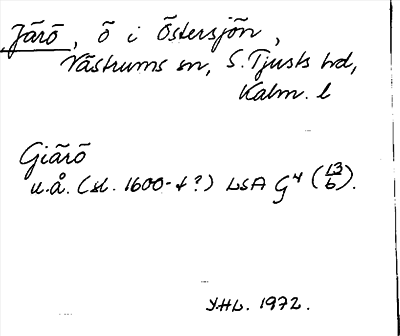 Järö, ö i Östersjön,
Västrums sn, S. Tjusts hd,
Kalm. l
Giärö
u.å. (sl. 1600-t?) LSA G4 (13/6).
YHL. 1972.